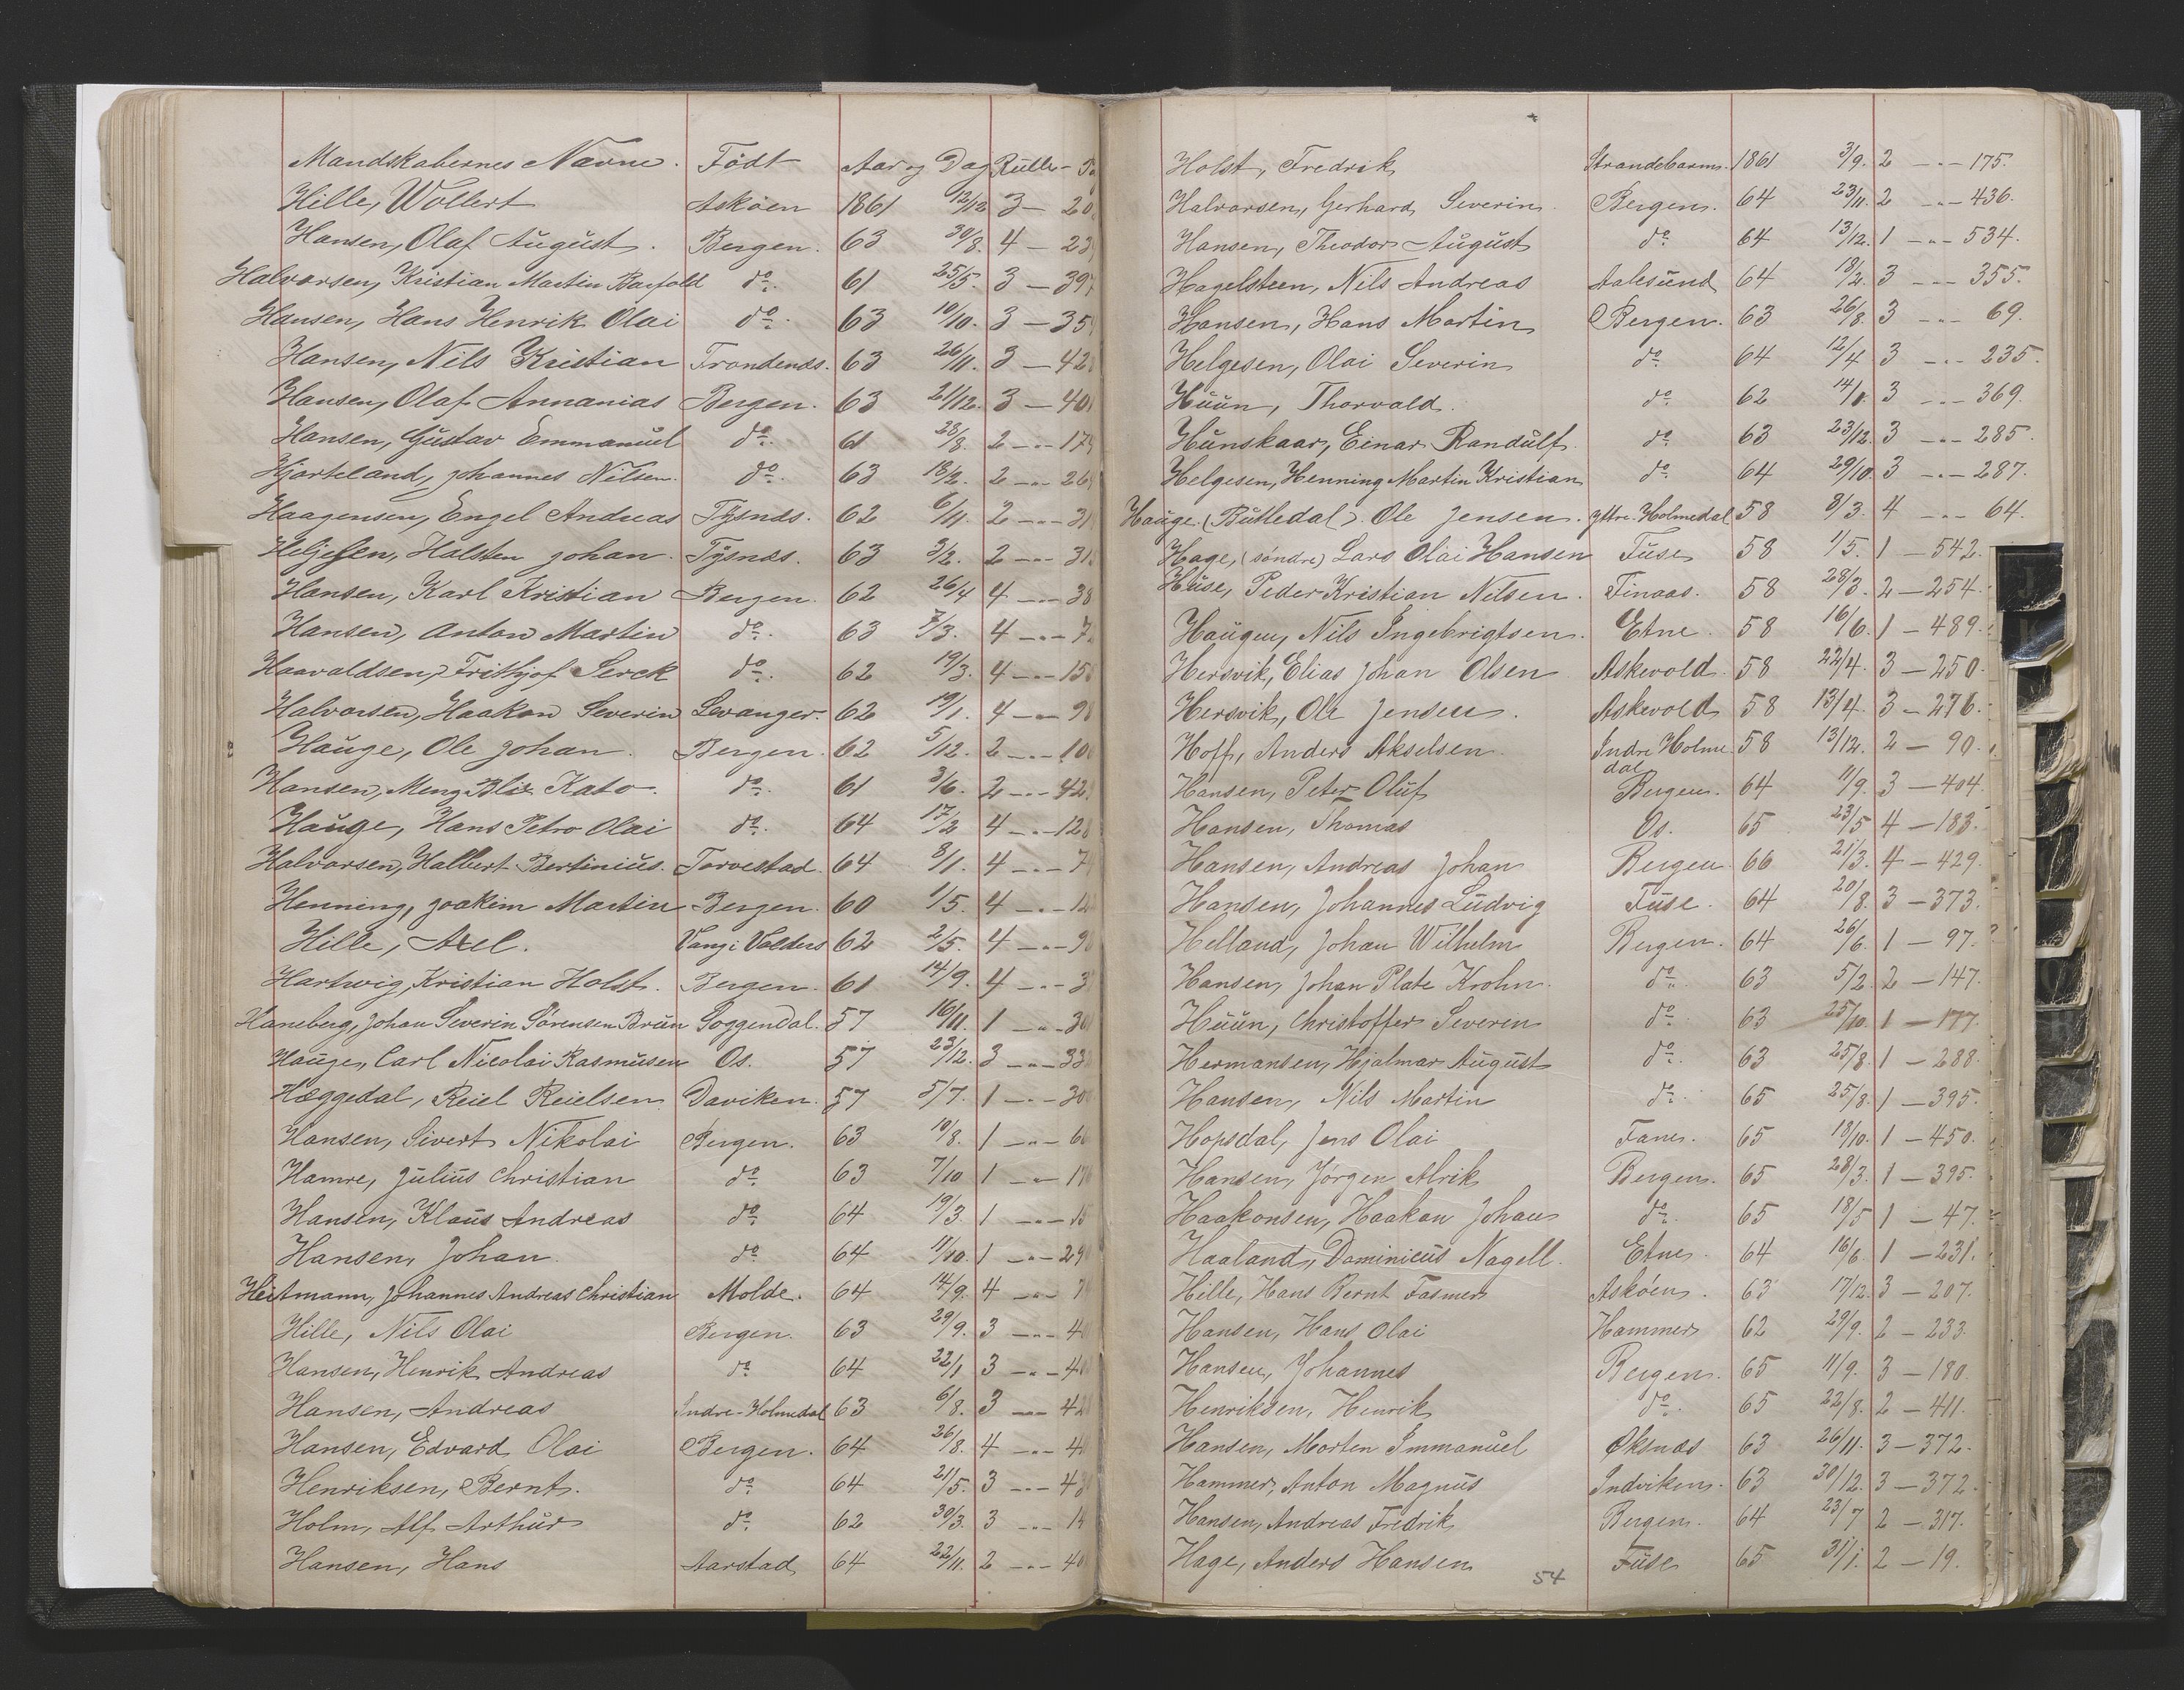 Mandskabernes Navne. Födt Aar og Dag Rulle
Hille, Wollert Asköen 1861 12/12 3 — 20
Hansen, Olaf August. Bergen. 63 30/8. 4 — 23
Halvorsen, Kristian Martin Barfold do. 61 25/5. 3 — 397
Hansen, Hans Henrik Olai do. 63 10/10. 3 — 35
Hansen, Nils Kristian Trondenæs. 63 26/11. 3 — 42
Hansen, Olaf Annanias Bergen. 63 21/12. 3 — 40
Hansen, Gustav Emmanuel do. 61 28/8. 2 -"- 17
Hjorteland, Johannes Nilsen. do. 63 18/2. 2 -"- 26
Haagensen, Engel Andreas Tysnæs. 62 6/11. 2 -"- 31
Heljesen, Halsten Johan. Tysnæs. 63 3/2. 2 -"- 31
Hansen, Karl Kristian Bergen. 62 26/4 4 -"- 38
Hansen, Anton Martin do. 63 7/3. 4 -"- 7
Haavaldsen, Frithjof Serck do. 62 19/3. 4 -"- 15
Halvorsen, Haakon Severin Levanger. 62 19/1. 4 -"- 9
Hauge, Ole Johan. Bergen. 62 5/12. 2 -"- 10
Hansen, Meng Blix Kato. do. 61 3/6. 2 -"- 42
Hauge, Hans Petro Olai do. 64 17/2 4 -"- 12
Halvorsen, Halbert Bertinius. Torvestad. 64 8/1. 4 -"- 7
Henning, Joakim Martin Bergen. 60 1/5. 4 -"- 12
Hille, Axel. Vang i Valders 62 2/5. 4 -"- 9
Hartwig, Kristian Holst. Bergen. 61 14/9. 4 -"- 3
Haneberg, Johan Severin Sörensen Brun Soggendal. 57 16/11. 1 -"- 30
Hauge, Carl Nicolai Rasmusen Os. 57 23/12. 3 -"- 33
Hæggedal, Reiel Reielsen Daviken. 57 5/7. 1 -"- 30
Hansen, Sivert Nikolai Bergen. 63 10/8. 1 -"- 6
Hamre, Julius Christian do 63 7/10 1 -"- 17
Hansen, Klaus Andreas do 64 19/3. 1 -"- 15
Hansen, Johan do 64 11/10. 1 -"- 29
Heitmann, Johannes Andreas Christian Molde. 64 14/9. 4 -"- 7
Hille, Nils Olai Bergen. 63 29/9. 3 -"- 4
Hansen, Henrik Andreas do 64 22/1 3 -"- 4
Hansen, Andreas Indre-Holmedal 63 6/8. 3 -"- 42
Hansen, Edvard Olai Bergen. 64 26/8. 4 -"- 4
Henriksen, Bernt. do 64 21/5. 3 -"- 43
Holm, Alf Arthur do. 62 30/3. 3 -"- 14
Hansen, Hans Aarstad 64 22/11. 2 -"- 40
Holst, Fredrik Strandebarm. 1861 3/9. 2 -"- 175.
Halvorsen, Gerhard Severin Bergen. 64 23/11. 2 -"- 436.
Hansen, Theodor August do. 64 13/12. 1 -"- 534.
Hagelsteen, Nils Andreas Aalesund 64 18/2. 3 -"- 355.
Hansen, Hans Martin Bergen. 63 26/8. 3 -"- 69.
Helgesen, Olai Severin do. 64 12/4 3 -"- 235.
Huun, Thorvald. do. 62 14/8. 3 -"- 369.
Hunskaar, Einar Randulf do. 63 23/12. 3 -"- 285.
Helgesen, Henning Martin Kristian do. 64 29/10. 3 -"- 287.
Hauge (Butledal). Ole Jensen. Yttre-Holmedal 58 8/3. 4 -"- 64.
Hage, (söndre) Lars Olai Hansen Fuse 58 1/5. 1 — 542.
Huse, Peder Kristian Nilsen. Finaas. 58 28/3. 2 — 254.
Haugen, Nils Ingebrigtsen. Etne. 58 16/6. 1 — 489.
Hersvik, Elias Johan Olsen Askevold. 58 22/4. 3 — 250.
Hersvik, Ole Jensen. Askevold 58 13/4. 3 — 276.
Hoff, Anders Akselsen. Indre Holme 58 13/12. 2 — 90.
dal
Hansen, Peter Oluf Bergen. 64 11/9. 3 — 404.
Hansen, Thomas Os. 65 23/5 4 — 183.
Hansen, Andreas Johan Bergen 66 21/3. 4 — 429.
Hansen, Johannes Ludvig Fuse. 64 20/8. 3 — 373.
Helland, Johan Wilhelm Bergen. 64 26/6. 1 — 97.
Hansen, Johan Plate Krohn. do. 63 5/2. 2 — 147.
Huun, Christoffer Severin do. 63 25/10. 1 — 177.
Hermansen, Hjalmar August do. 63 25/8. 1 — 288.
Hansen, Nils Martin do. 65 25/8. 1 — 395.
Hopsdal, Jens Olai Fane. 65 18/10. 1 — 450.
Hansen, Jörgen Alrik Bergen. 65 28/3. 1 — 395.
Haakonsen, Haakon Johan do. 65 18/5 1 — 47.
Haaland, Dominicus Nagell. Etne. 64 16/6. 1 — 231.
Hille, Hans Bernt Fasmer Asköen. 63 17/12. 3 — 207.
Hansen, Hans Olai Hammer 62 29/9. 2 — 233.
Hansen, Johannes Bergen. 65 11/9. 3 — 180.
Henriksen, Henrik do. 65 22/8. 2 — 411.
Hansen, Morten Immanuel Øksnæs 63 26/11. 3 — 372.
Hammer, Anton Magnus Indviken. 63 30/12. 3 — 372.
Hansen, Andreas Fredrik Bergen. 64 23/7 2 — 317.
Hage, Anders Hansen Fuse 65 31/1. 2 — 19.
54
J
K